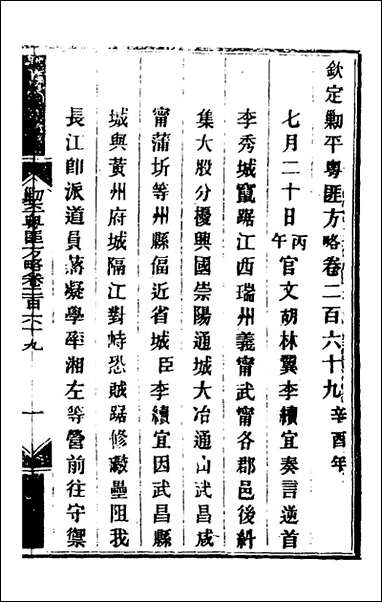 欽定勦平粵匪方略卷二百六十九辛酉年
七月二十日丙午官文胡林翼李續宜奏言逆首
李秀城竄踞江西瑞州義甯武甯各郡邑後糾
集大股分擾興國崇陽通城大冶通山武昌咸
甯蒲圻等州縣偪近省城臣李續宜因武昌縣
城與黃州府城隔江對峙恐賊踞修敵壘阻我
長江卽派道員蔣凝學率湘左等營前往守禦
勦平粵匪方略卷二百六十九
一